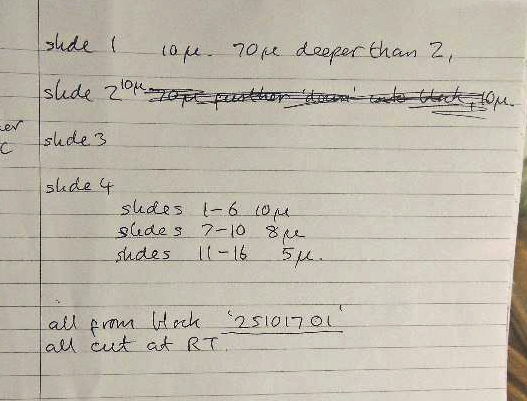 slide 1 10µ. 70µ deeper than 2,
slide 2 10µ 70µ further 'down' into block, 10µ.
er
C slide 3
slide 4
slides 1-6 10µ
slides 7-10 8µ
slides 11-16 5µ.
all from block '25101701'
all cut at RT.